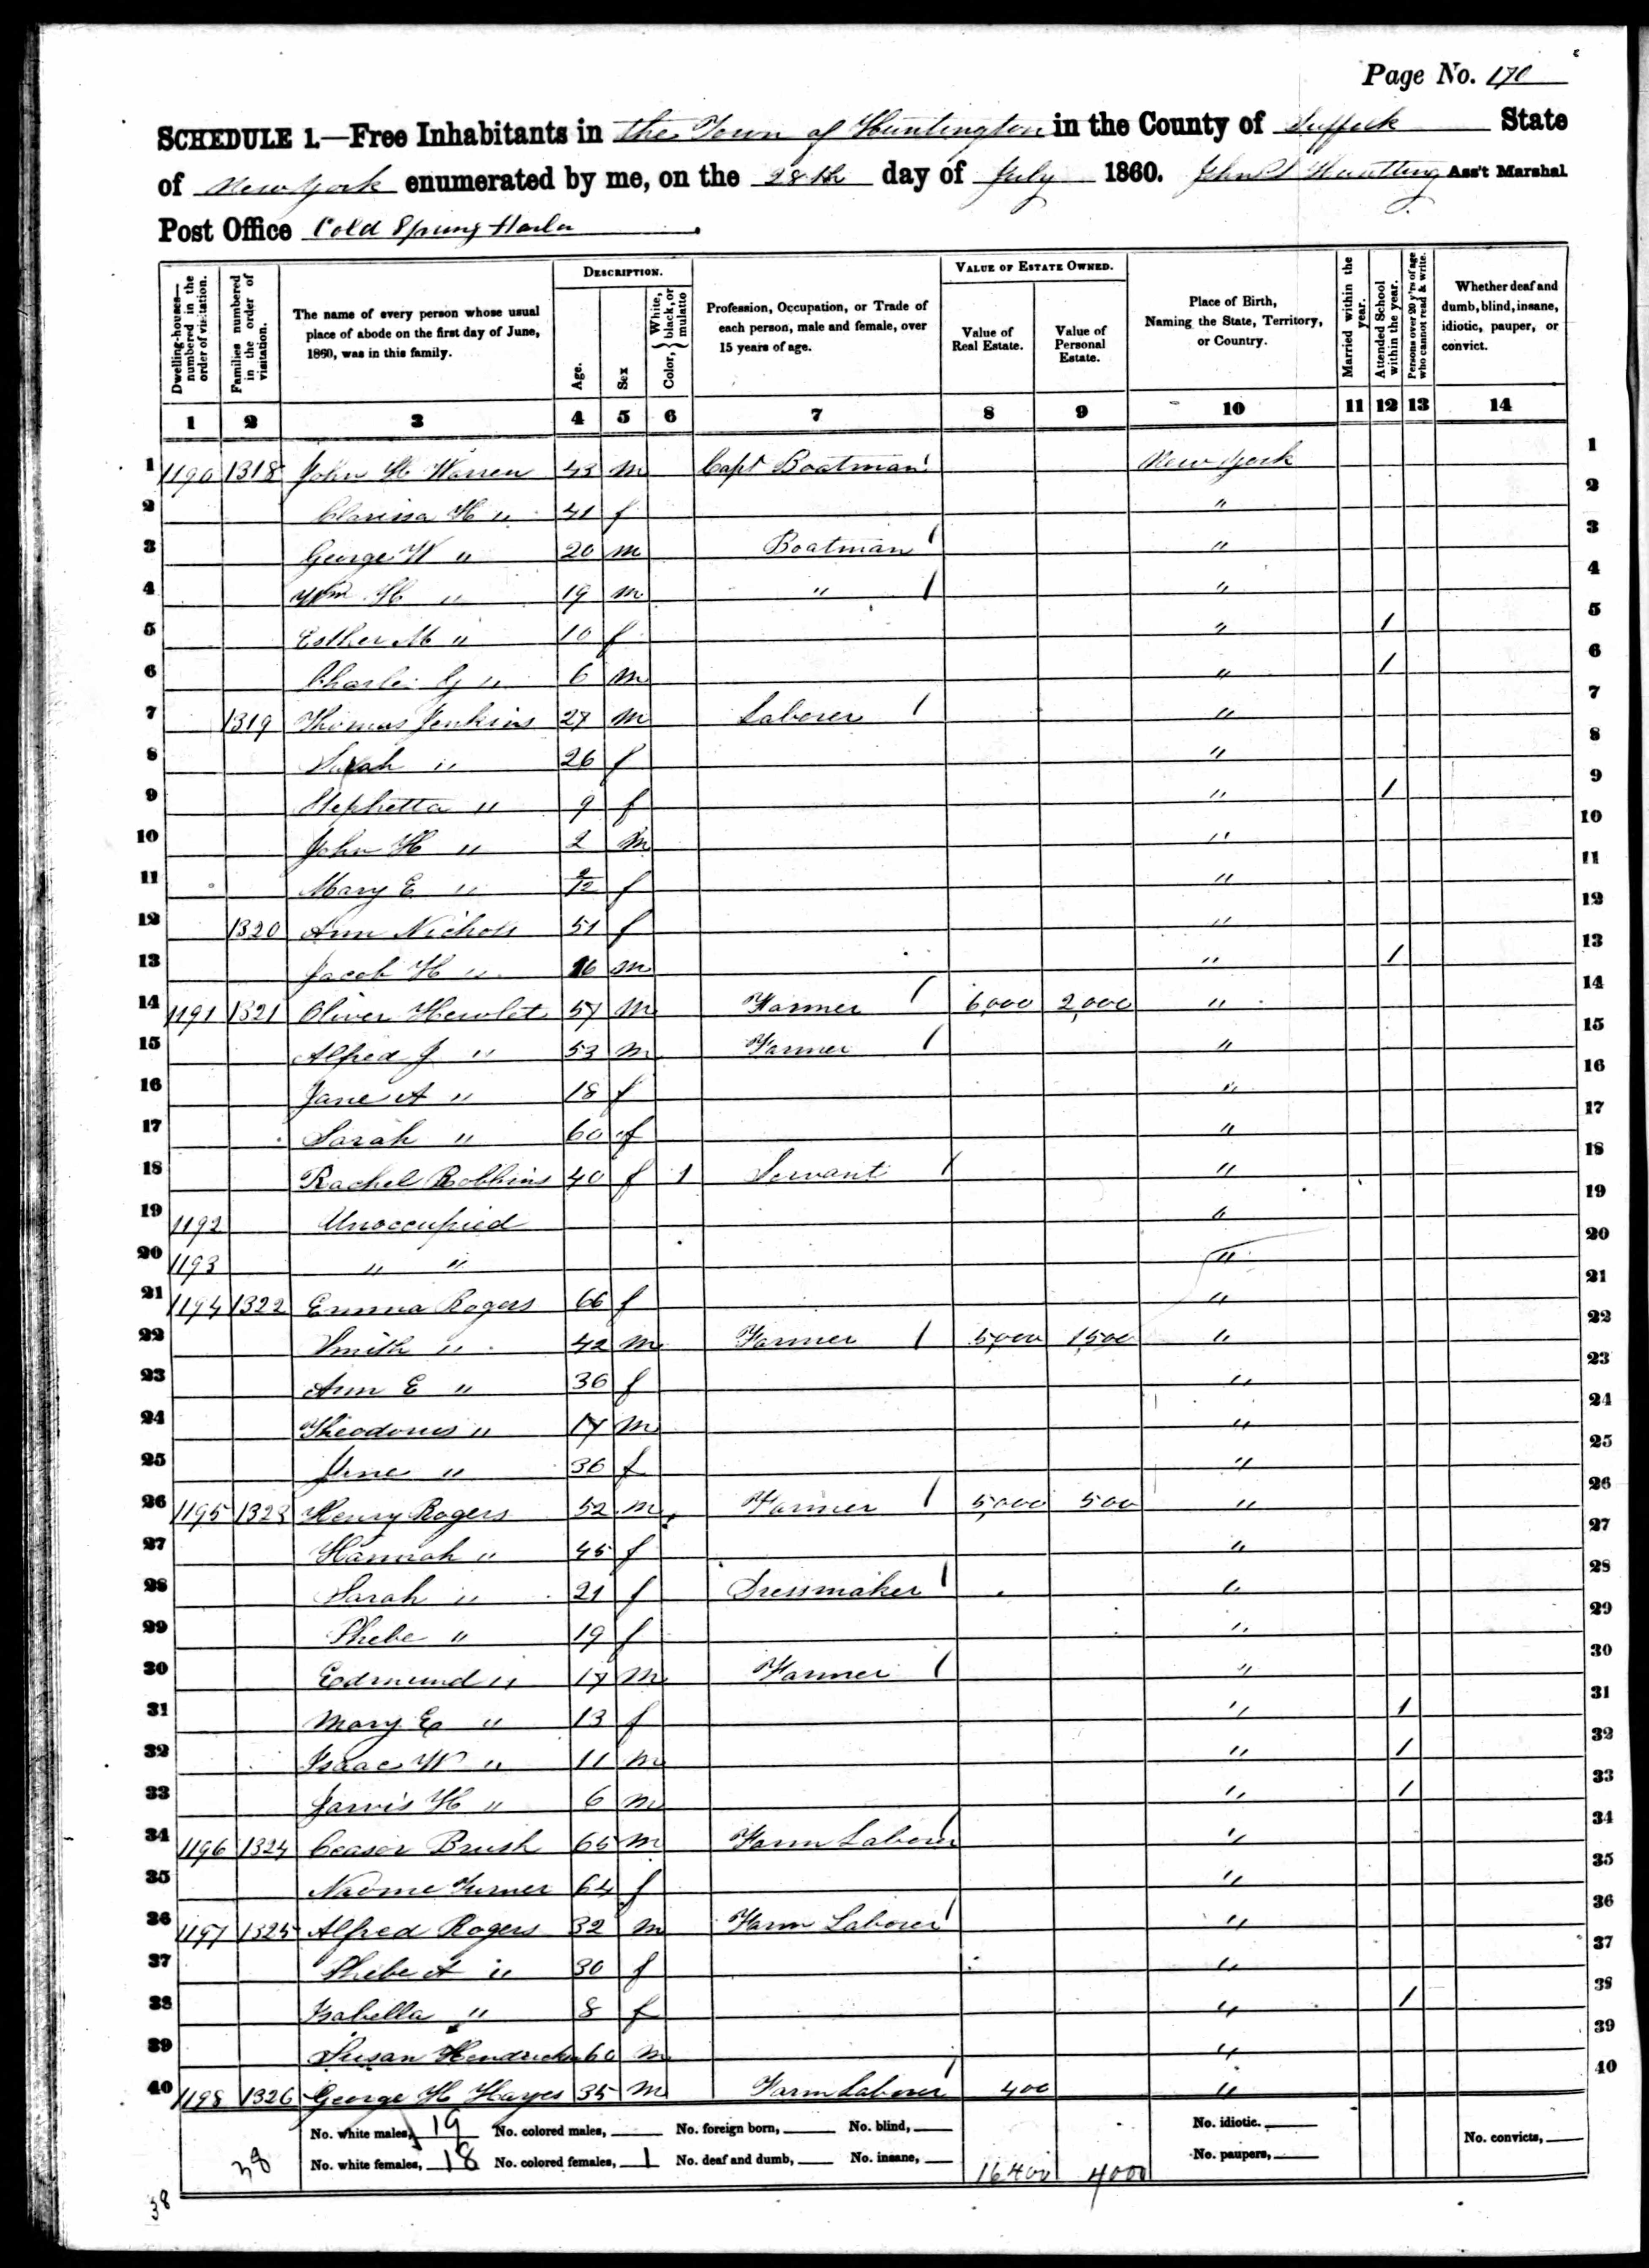 Page No. 170
SCHEDULE 1.—Free Inhabitants in the Town of Huntington in the County of Suffolk State
of New York enumerated by me, on the 28th day of July 1860. John S Huntting Ass't Marshal
Post Office Cold Spring Harbor
Dwelling-houses—numbered in the order of visitation. Families numbered in the order of visitation. The name of every person whose usual place of abode on the first day of June, 1860, was in this family. DESCRIPTION. Age. Sex Color, { White, black, or mulatto Profession, Occupation, or Trade of each person, male and female, over 15 years of age. VALUE OF ESTATE OWNED. Value of Real Estate. Value of Personal Estate. Place of Birth, Naming the State, Territory, or Country. Married within the year. Attended School within the year. Persons over 20 y'rs of age who cannot read & write. Whether deaf and dumb, blind, insane, idiotic, pauper, or convict.
1 2 3 4 5 6 7 8 9 10 11 12 13 14
1 1190 1318 John H Warren 43 m Capt Boatman New York 1
2 Clarissa H " 41 f " 2
3 George W " 20 m Boatman / " 3
4 Wm H " 19 m " / " 4
5 Esther M " 10 f " / 5
6 Charles G " 6 m " / 6
7 1319 Thomas Jenkins 27 m Laborer / " 7
8 Sarah " 26 f " 8
9 Hephretta " 9 f " / 9
10 John H " 2 m " 10
11 Mary E " 2/12 f " 11
12 1320 Ann Nichols 51 f " 12
13 Jacob H " 16 m " / 13
14 1191 1321 Oliver Hewlet 57 m Farmer / 6,000 2,000 " 14
15 Alfred J " 53 m Farmer / " 15
16 Jane A " 18 f " 16
17 Sarah " 60 f " 17
18 Rachel Robbins 40 f 1 Servant / " 18
19 1192 Unoccupied " 19
20 1193 " " " 20
21 1194 1322 Emma Rogers 66 f " 21
22 Smith " 42 m Farmer / 5,000 1,500 " 22
23 Ann E " 36 f " 23
24 Theodorus " 17 m " 24
25 Jane " 36 f " 25
26 1195 1323 Henry Rogers 52 m Farmer / 5,000 500 " 26
27 Hannah " 45 f " 27
28 Sarah " 21 f Dressmaker / " 28
29 Phebe " 19 f " 29
30 Edmund " 17 m Farmer / " 30
31 Mary E " 13 f " / 31
32 Isaac W " 11 m " / 32
33 Jarvis H " 6 m " / 33
34 1196 1324 Ceaser Brush 65 m Farm Laborer / " 34
35 Naome Turner 64 f " 35
36 1197 1325 Alfred Rogers 32 m Farm Laborer / " 36
37 Phebe A " 30 f " 37
38 Isabella " 8 f " / 38
39 Susan Hendrickson 60 m " 39
40 1198 1326 George H Hayes 35 m Farm Laborer / 400 " 40
38 No. white males, 19 No. colored males, No. foreign born, No. blind, No. idiotic. No. convicts,
No. white females, 18 No. colored females, 1 No. deaf and dumb, No. insane, 16400 4000 No. paupers,
38